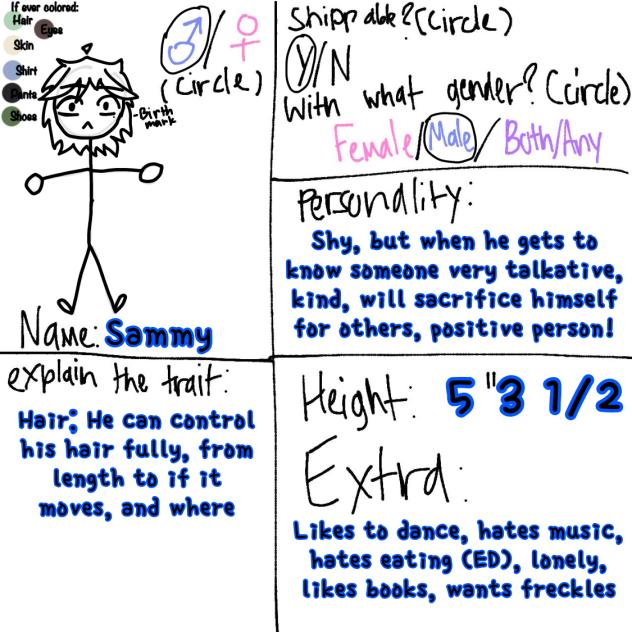 If ever colored:
Hair
Eyes
Skin
Shirt
Pants
Shoes
♂/♀
(Circle)
-Birth
mark
Name: Sammy
Shippable? (Circle)
Y/N
With what gender? (Circle)
Female/Male/Both/Any
Personality:
Shy, but when he gets to
know someone very talkative,
kind, will sacrifice himself
for others, positive person!
explain the trait:
Hair: He can control
his hair fully, from
length to if it
moves, and where
Height: 5"3 1/2
Extra:
Likes to dance, hates music,
hates eating (ED), lonely,
likes books, wants freckles